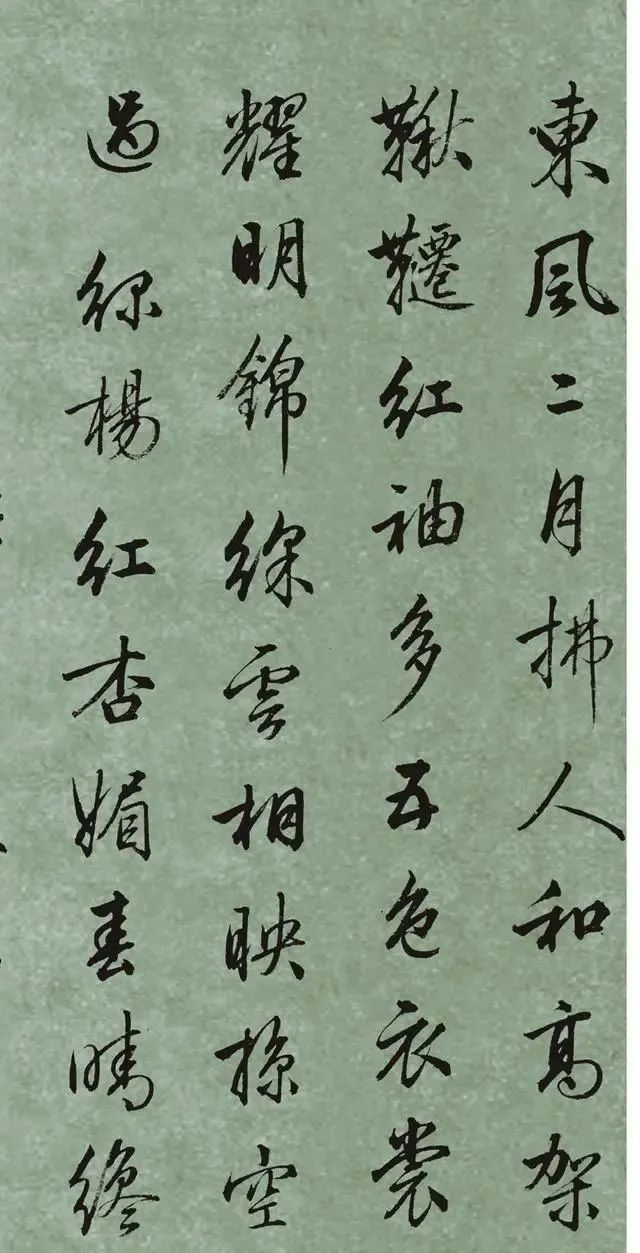 東風二月拂人和高架
鞦韆紅袖多五色衣裳
耀明錦綵雲相映掠空
過綠楊紅杏媚春晴終